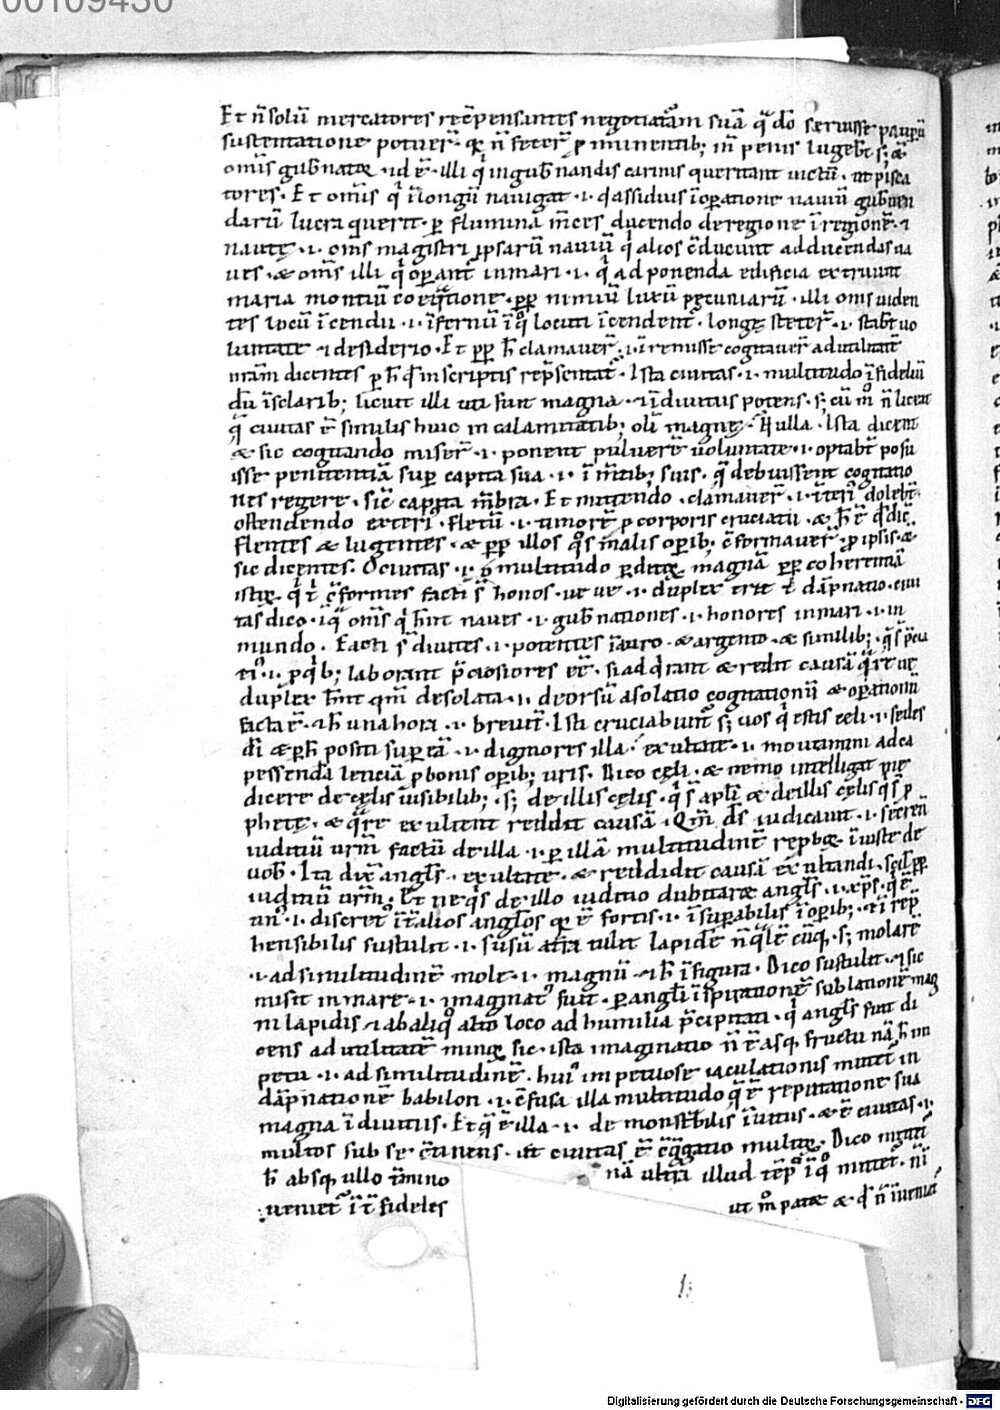 00109430
Et n̄ solū mercatores rec̄pensantes negotiatōem suā q̄ dō servisse paupū
sustentatione potuer̄ · qr̄ n̄ fecer̄ p̄ īminentib; in penis lugebt̄ s; &
om̄s gub̄natoꝝ · id ē · illi qͥ in gub̄nandis carinis queritant victū · ut pisca
tores · Et om̄s qͥ ī longū navigat · i · q̄ assidui s̄ īoꝑatione naviū gub̄nan
darū lucra querit · ꝑ flumina m̄ces ducendo de regione ī regionē · ⁊
naute · i · om̄s magistri ipsarū naviū qͥ alios c̄ducunt ad ducendas na
ves · & om̄s illi qͥ oꝑant̄ in mari · i · qͥ ad ponenda edificia extruunt
maria montiū coeq̄tione · ꝓp̄ nimiū luxū pecuniarū · illi om̄s viden
tes locū īcendii · i · īfernū ī qͦ locuti īcendent̄ · longe steter̄ · i · stabt̄ vo
luntate ⁊ desiderio · Et ꝓp̄ h̄ clamaver̄ · i · īremisse cogitaver̄ ad utilitatē
nr̄am dicentes ꝑ h̄ qd̄ in scriptis rep̄sentat̄ · Ista civitas · i · multitudo īfidelium
dū ī sclarib; licuit illi uti fuit magna · ⁊ ī divitiis potens · s; cū mͦ n̄ liceat
q̄ civitas ē similis huic in calamitatib; olī magne · R̄ nulla · Ista dicent
& sic cogitando miser̄ · i · ponent pulverē voluntate · i · optabt̄ posu
isse penitentiā suꝑ capita sua · i · ī m̄tib; suis · q̄ debuissent cogitatio
nes regere · sic̄ capita m̄bra · Et mittendo · clamaver̄ · i · īteri dolebt̄
ostendendo exteri · fletū · i · timorē ꝓ corporis cruciatu · & h̄ ē qd̄ dic̄
flentes & lugentes · & ꝓp̄ illos qͦs ī malis oꝑib; c̄formaver̄ · ꝓ ipsis · &
sic dicentes · O civitas · i · o multitudo ꝑditoꝝ magnā ꝓp̄ coherentiā
iste · qͥ t̄ c̄formes facti s̄t honos · ve ve · i · duplex erit t̄ dāpnatio · civi
tas dico · ī qͣ om̄s qͥ h̄nt naves · i · gub̄nationes · i · honores in mari · i · in
mundo · Facti s̄t divites · i · potentes ī auro · & argento · & similib; · qͥ s̄ p̄cia
eiͥ · i · pqͥb; laborant p̄ciosiores eē · si adqͥrant & redit causā qͣre ve
duplex h̄nt qm̄ desolata · i · deorsū a solatio cogitationū & operationū
facta ē · ⁊ h̄ una hora · i · brevit̄ · Isti cruciabunt̄ s; vos qͥ estis celi · i · sedes
dī & ꝑ h̄ positi suꝑ eā · i · digniores illa · exultate · i · movimini ad ca
pessendā leticiā ꝓ bonis oꝑib; vr̄is · Dico celi · & nemo intelligat me
dicere de celis īvisibilib; · s; de illis celis · qͥ s̄t apl̄i & de illis celis qͥ s̄ p
phete · & qͣre exultent reddit causā · Qm̄ ds̄ iudicavit · i · secretū
iuditiū vr̄m factū de illa · i · ꝑ illā multitudinē reꝑboꝝ īiuste de
vob̄ · Ita dix̄ angl̄s · exultate · & reddidit causā exultandi · scil ꝓp̄
iuditiū vr̄m · Et ne qͥs de illo iuditio dubitaret angl̄s · i · xp̄s · qͥ ē
un̄ · i · discret̄ īt̄ alios anglos qr̄ ē fortis · i · īsuꝑabilis ī oꝑib; · ⁊ ī rep̄
hensibilis sustulit · i · sursū altra tulit lapidē n̄ qͣlē cūq; s; molarē
· i · ad similitudinē mole · i · magnū · ⁊ h̄ ī figura · Dico sustulit · ⁊ sic
misit in mare · i · imaginat̄ fuit · ꝑ angl̄i īspirationē sublationē mag
ni lapidis ⁊ ab aliqͦ alto loco ad humilia p̄cipitati · qͥ angl̄s fuit di
cens ad utilitatē minoꝝ sic · ista imaginatio n̄ ē absq; fructu nā h̄ im
petu · i · ad similitudinē · huiͥ impetuose iaculationis mittet̄ in
dāpnationē babilon · i · c̄fusa illa multitudo q̄ ē reputatione sua
magna ī divitiis · Et q̄ ē illa · i · demonst̄bilis ī vitiis · & ē civitas · i ·
multos sub se c̄tinens · ut civitas ē c̄gͣgatio multoꝝ · Dico mitti
h̄ absq; ullo t̄mino nā ultra illud tēpͥ ī qͦ mittet̄ · n̄ ī
veniet̄ īt̄ fideles ut mͦ patet & qd̄ n̄ īveniat̄
Digitalisierung gefördert durch die Deutsche Forschungsgemeinschaft - DFG